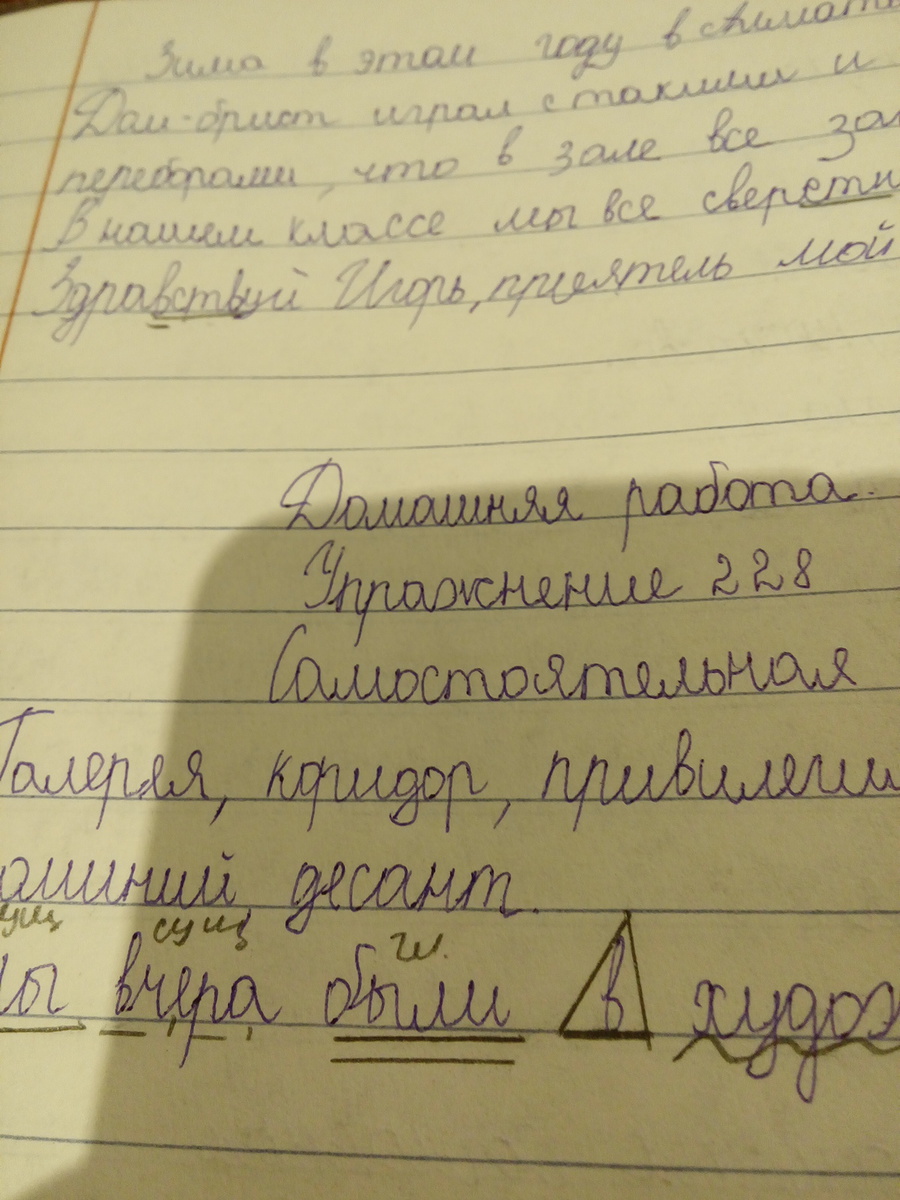 Зима в этом году в Алматы
Дом-брист играл с такими и
переборами, что в зале все зал
В нашем классе мы все сверстн
Здравствуй Игорь, приятель мой
Домашняя работа.
Упражнение 228
Самостоятельная
Галерея, коридор, привилеги
омашний десант.
ущ сущ гл.
ы вчера были в худож